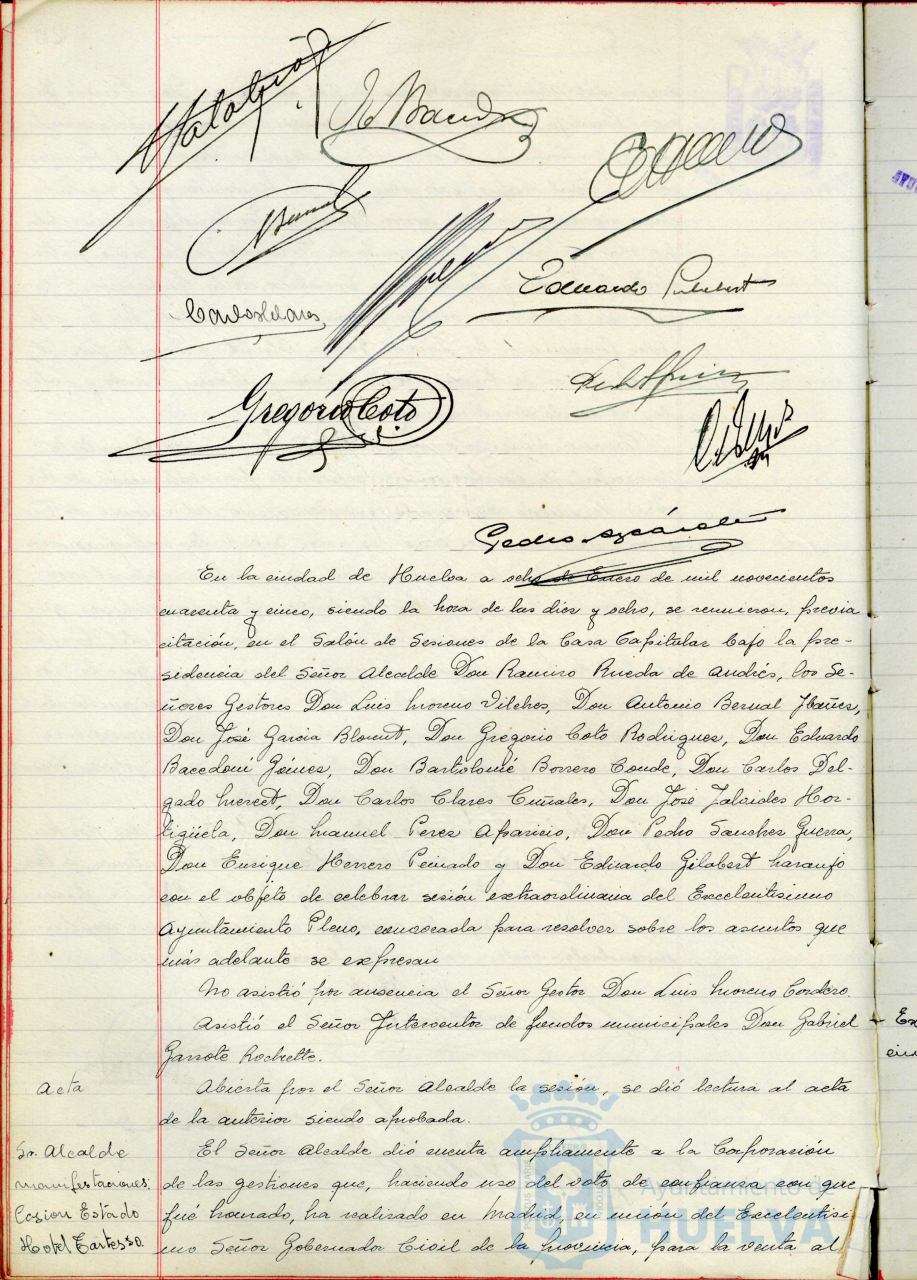 Carlos Clares
Eduardo Gilabert
Gregorio Coto
Pedro
En la ciudad de Huelva a ocho de Enero de mil novecientos
cuarenta y cinco, siendo la hora de las dies y ocho, se reunieron, previa
citación, en el Salón de Sesiones de la Casa Capitular bajo la pre-
sidencia del Señor Alcalde Don Ramiro Rueda de Andrés, los Se-
ñores Gestores Don Luis Moreno Vilches, Don Antonio Bernal Ibañes,
Don José Garcia Blount, Don Gregorio Coto Rodrigues, Don Eduardo
Bacedoni Gómes, Don Bartolomé Borrero Conde, Don Carlos Del-
gado Merect, Don Carlos Clares Cuñales, Don José Jalvides Hor-
tigüela, Don Manuel Peres Aparicio, Don Pedro Sanches Guerra,
Don Enrique Herrero Peinado y Don Eduardo Gilabert Naranjo
con el objeto de celebrar sesión extraordinaria del Excelentisimo
Ayuntamiento Pleno, convocada para resolver sobre los asuntos que
más adelante se expresan
No asistió por ausencia el Señor Gestor Don Luis Moreno Cordero.
Asistió el Señor Interventor de fondos municipales Don Gabriel
Garrote Rochette.
Acta
Abierta por el Señor Alcalde la sesión, se dió lectura al acta
de la anterior siendo aprobada.
Sr. Alcalde
manifestaciones.
Cesion Estado
Hotel Tartesso.
El Señor Alcalde dió cuenta ampliamente a la Corporación
de las gestiones que, haciendo uso del voto de confianza con que
fué honrado, ha realizado en Madrid, en unión del Excelentisi
mo Señor Gobernador Civil de la provincia, para la venta al
Ayuntamiento de
HUELVA